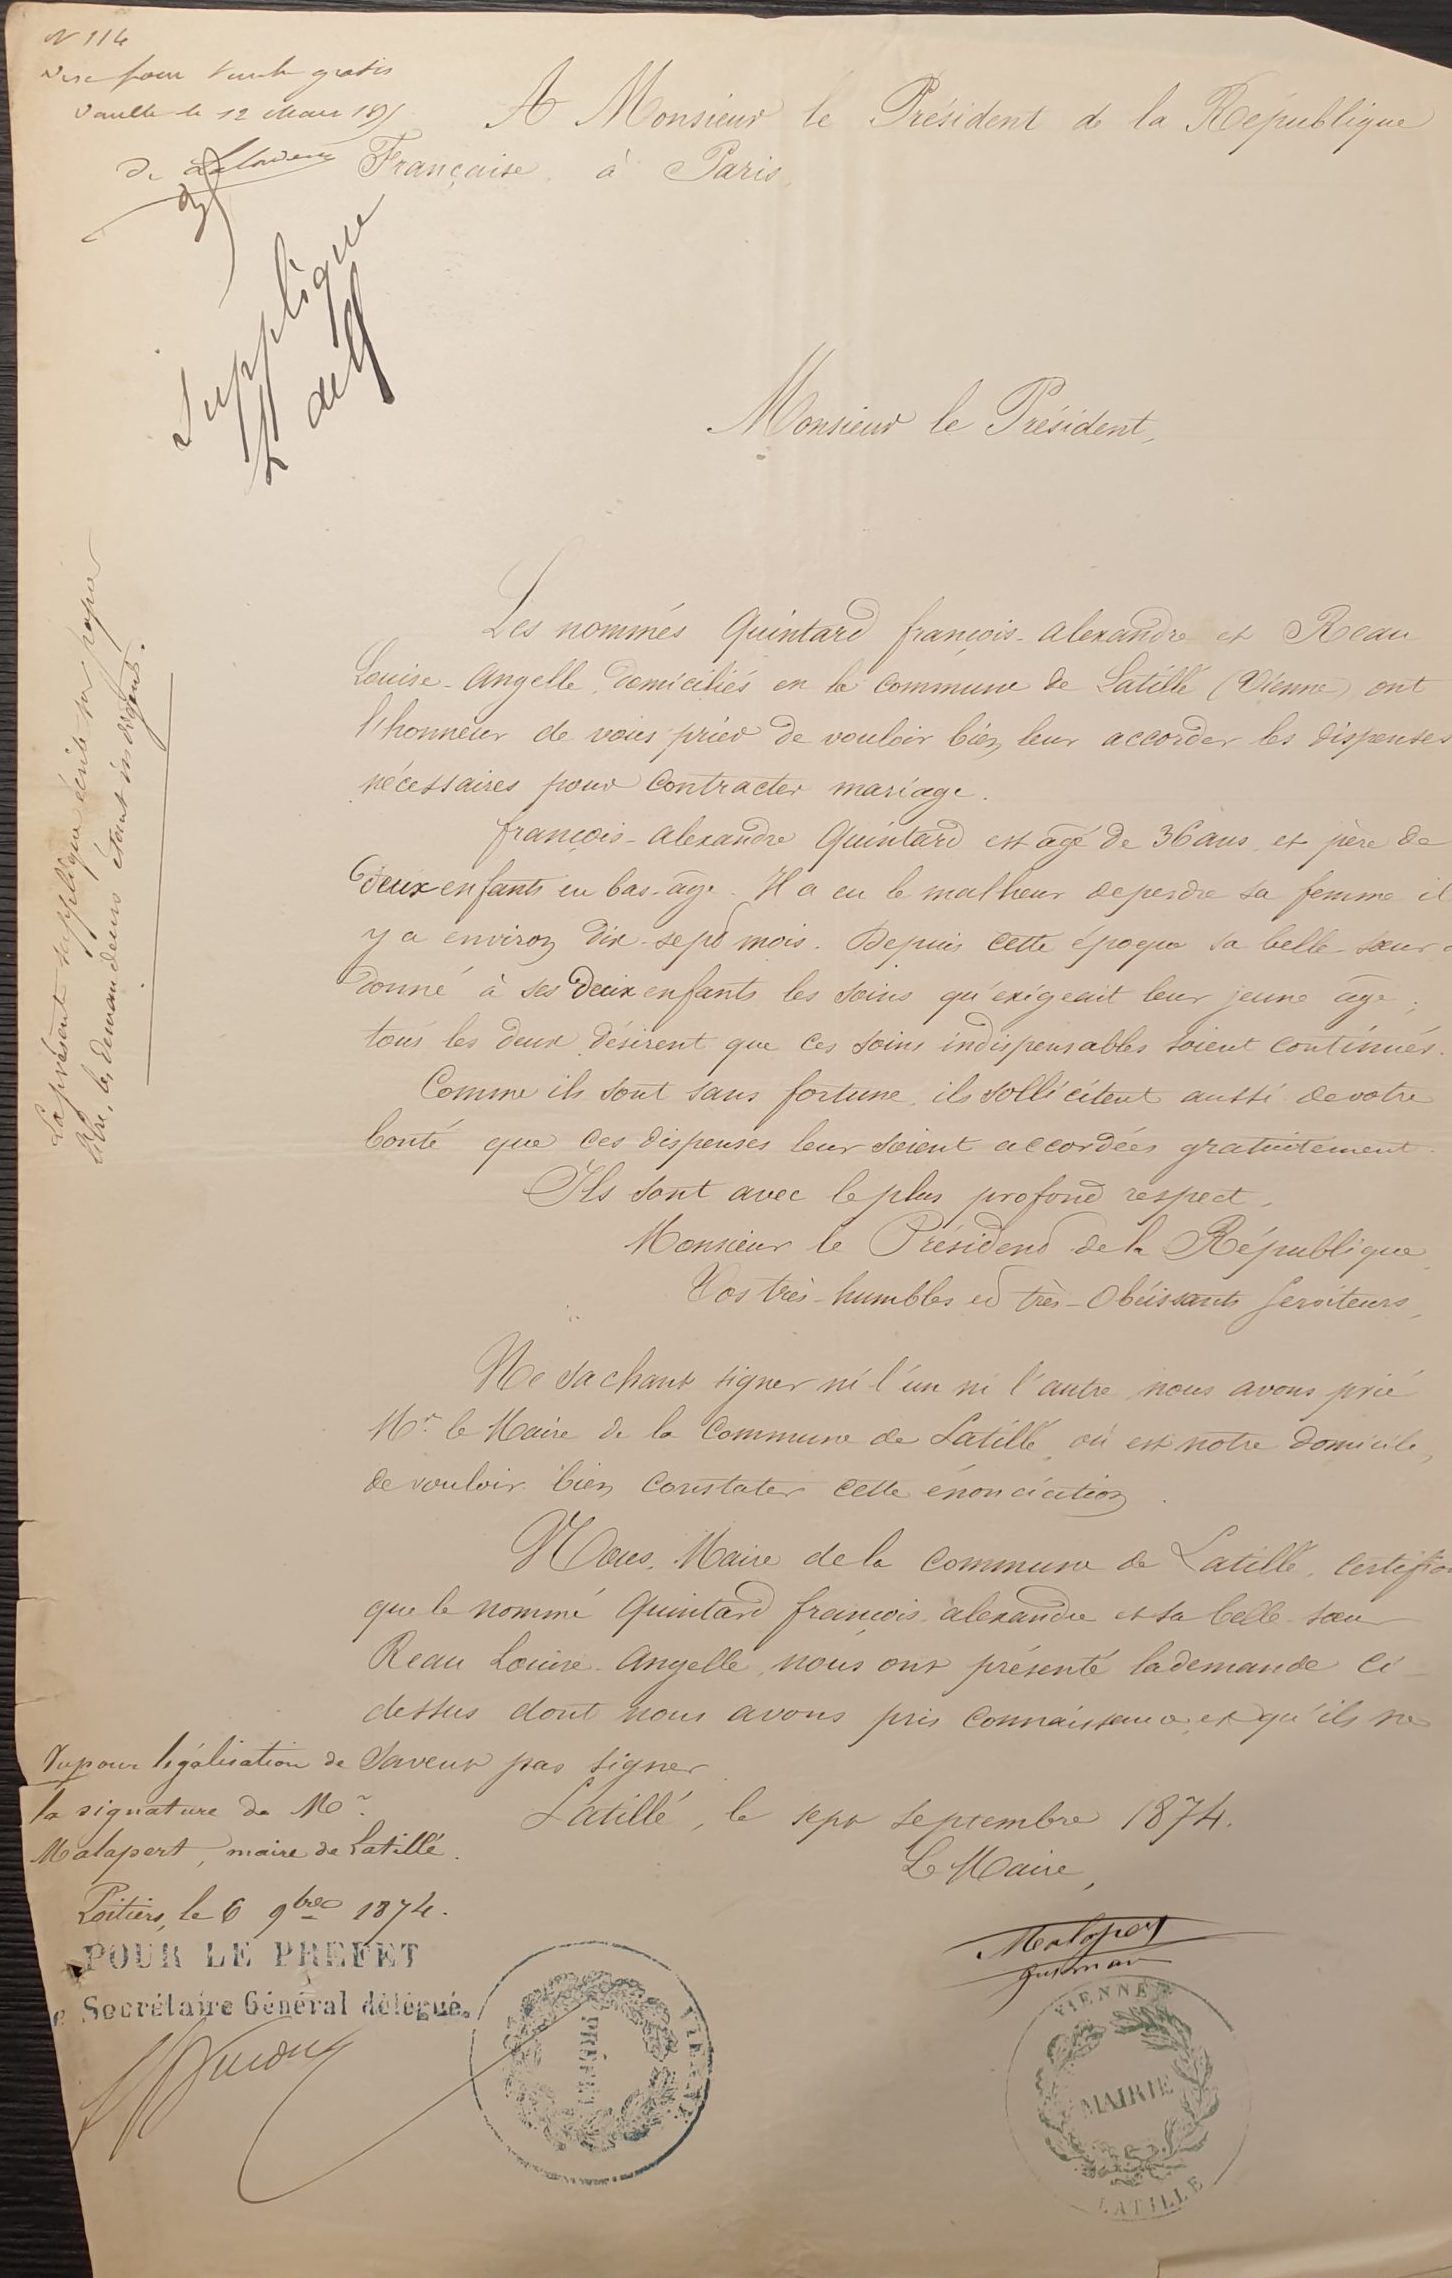 N 114
Visé pour timbre gratis
le 12 Mars 18
A Monsieur le Président de la République
Française à Paris
Supplique
Monsieur le Président,
La présente supplique écrite sur papier
libre, les demandeurs étant indigents.
Les nommés Quintard françois-alexandre et Reau
Louise-Angelle, domiciliés en la commune de Latillé (Vienne) ont
l'honneur de vous prier de vouloir bien leur accorder les dispenses
nécessaires pour contracter mariage.
françois-alexandre Quintard est âgé de 36 ans et père de
deux enfants en bas-âge. Il a eu le malheur de perdre sa femme il
y a environ dix-sept mois. Depuis cette époque sa belle-sœur a
donné à ses deux enfants les soins qu'exigeait leur jeune âge;
tous les deux désirent que ces soins indispensables soient continués.
Comme ils sont sans fortune, ils sollicitent aussi de votre
bonté que ces dispenses leur soient accordées gratuitement.
Ils sont avec le plus profond respect,
Monsieur le Président de la République,
Vos très-humbles et très-Obéissants Serviteurs,
Ne sachant signer ni l'un ni l'autre nous avons prié
Mr. le Maire de la Commune de Latillé, où est notre domicile,
de vouloir bien constater cette énonciation.
Nous, Maire de la commune de Latillé, certifions
que le nommé Quintard françois-alexandre et sa belle-sœur
Reau Louise-Angelle, nous ont présenté la demande ci-
dessus dont nous avons pris connaissance et qu'ils ne
savent pas signer
Latillé, le sept septembre 1874.
Le Maire,
Malapert
Vu pour légalisation de
la signature de Mr.
Malapert, maire de Latillé.
Poitiers, le 6 9bre 1874.
POUR LE PREFET
e Secrétaire Général délégué.
PRÉFET
VIENNE
VIENNE
MAIRIE
LATILLE